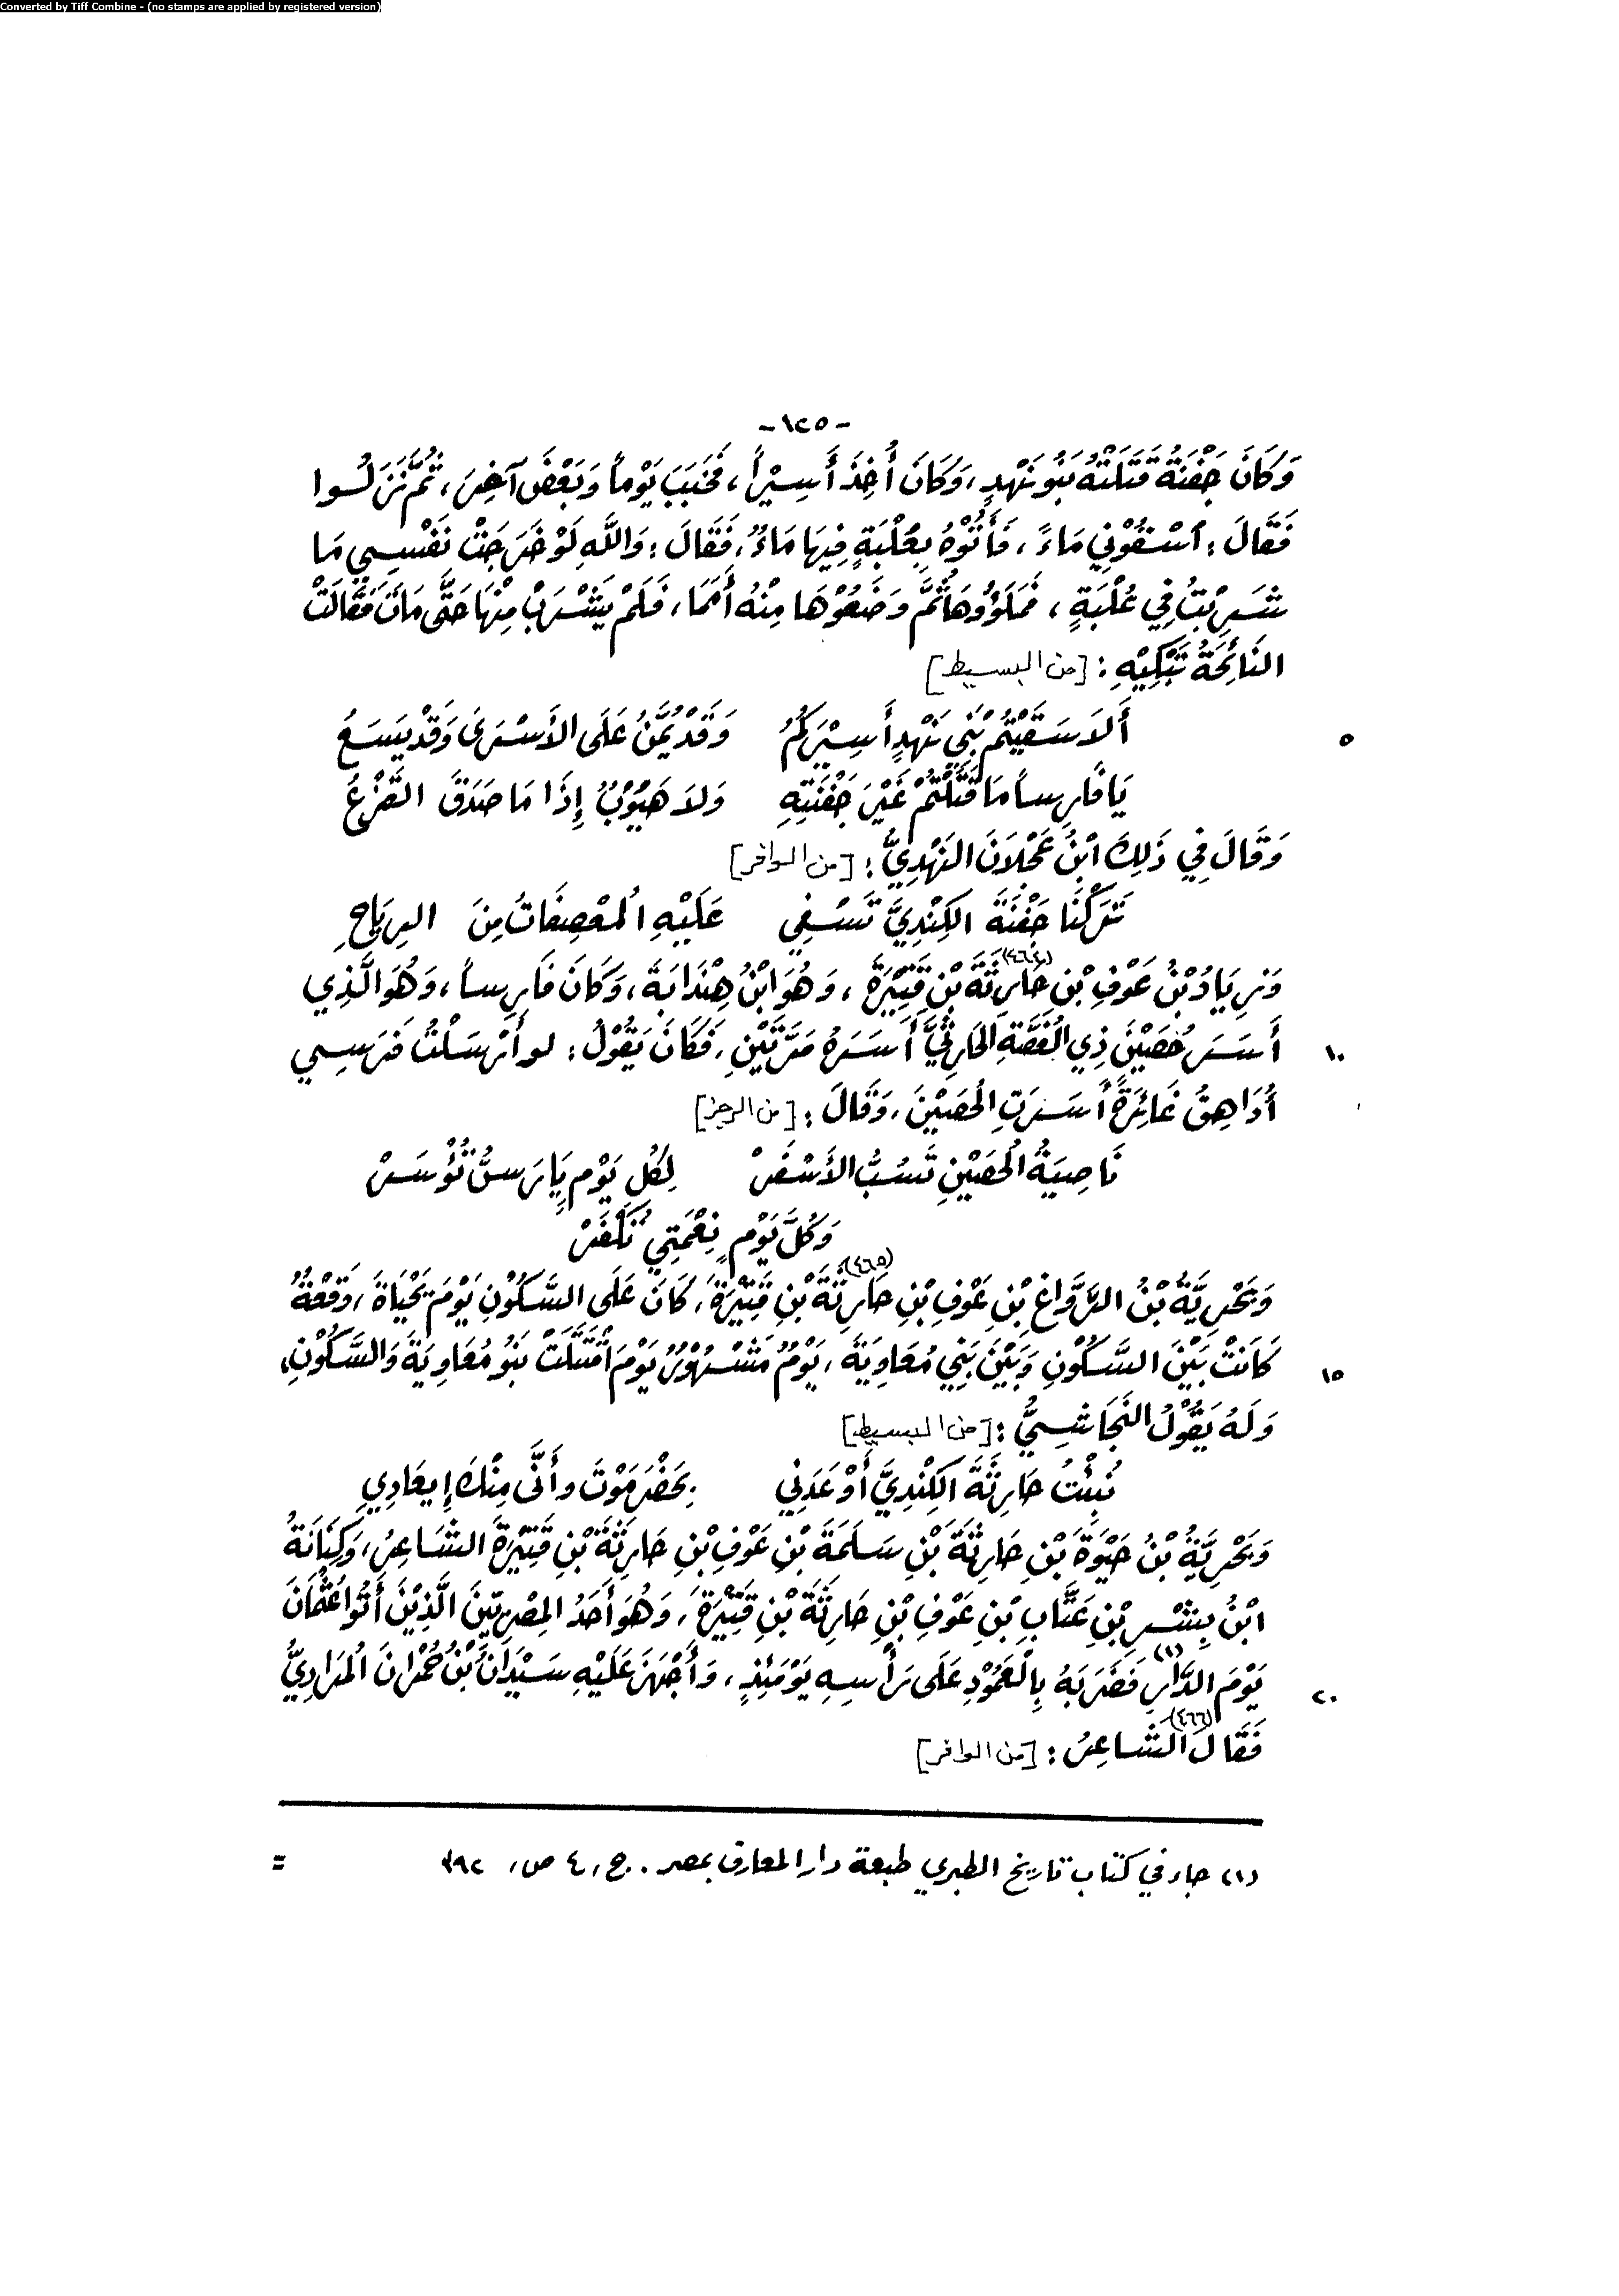 Converted by Tiff Combine - (no stamps are applied by registered version)
-١٢٥-
وَكَانَ جَفْنَةُ قَتَلَتْهُ بَنُو نَهْدٍ، وَكَانَ أُخِذَ أَسِيْراً، فَخَبَبَ يَوْماً وَبَعْضَ آخِرَ، ثُمَّ نَزَلُوا
فَقَالَ: اُسْقُوْنِي مَاءً، فَأَتَوْهُ بِعُلْبَةٍ فِيهَا مَاءٌ، فَقَالَ: وَاللَّهِ لَوْ خَرَجَتْ نَفْسِي مَا
شَرِبْتُ فِي عُلْبَةٍ، فَمَلَؤُوهَا ثُمَّ وَضَعُوْهَا مِنْهُ أَمَمَا، فَلَمْ يَشْرَبْ مِنْهَا حَتَّى مَاتَ فَقَالَتْ
النَائِحَةُ تَبْكِيْهِ: [من البسيط]
أَلاَ سَقَيْتُمْ بَنِي نَهْدٍ أَسِيْرَكُمُ وَقَدْ يُمَّنُ عَلَى الأَسْرَى وَقَدْ يَسَعُ ٥
يَا فَارِساً مَا قَتَلْتُمْ غَيْرَ جَفْنَتِهِ وَلاَ هَيُوْبٌ إِذَا مَا صَدَقَ القَزَعُ
وَقَالَ فِي ذَلِكَ ابْنُ عَجْلاَنَ النَهْدِيُّ: [من الوافر]
تَرَكْنَا جَفْنَةَ الكِنْدِيَّ تَسْفِي عَلَيْهِ المُعْصِفَاتُ مِنَ الرِيَاحِ
وَزِيَادُ بْنُ عَوْفِ بْنِ حَارِثَةَ بْنِ قَتِيْرَةَ (٤٦٤)، وَهُوَ ابْنُ هِنْدَابَةَ، وَكَانَ فَارِساً، وَهُوَ الَّذِي
أَسَرَ حُصَيْنَ ذِي الغُصَّةِ الحَارِثِيَّ أَسَرَهُ مَرَّتَيْنِ، فَكَانَ يَقُوْلُ: لو أَرْسَلْتُ فَرَسِي ١٠
أُدَاهِقُ غَائِرَةً أَسَرَتِ الحُصَيْنَ، وَقَالَ: [من الرجز]
نَاصِيَةُ الحُصَيْنِ تَسُبُّ الأَشْقَرْ لِكُلِ يَوْمٍ يَا رَسُّ تُؤْسَرْ
وَكُلَّ يَوْمٍ نِعْمَتِي تُكْفَرْ
وَبَحْرِيَّةُ بْنُ الرَّوَّاغِ بْنِ عَوْفِ بْنِ حَارِثَةَ بْنِ قَتِيْرَةَ (٤٦٥)، كَانَ عَلَى السَّكُوْنِ يَوْمَ يَحْيَاةَ، وَقْعَةٌ
كَانَتْ بَيْنَ السَّكُوْنِ وَبَيْنَ بَنِي مُعَاوِيَةَ، يَوْمٌ مَشْهُوْرٌ يَوْمَ اقْتَتَلَتْ بَنُو مُعَاوِيَةَ وَالسَّكُوْنِ، ١٥
وَلَهُ يَقُوْلُ النَجَاشِيُّ: [من البسيط]
نُبِئْتُ حَارِثَةَ الكِنْدِيَّ أَوْعَدَنِي بِحَضْرَمَوْتَ وأَنَّى مِنْكَ إِيعَادِي
وَبَحْرِيَّةُ بْنُ حَيْوَةَ بْنِ حَارِثَةَ بْنِ سَلَمَةَ بْنِ عَوْفِ بْنِ حَارِثَةَ بْنِ قَتِيْرَةَ الشَاعِرُ، وَكِنَانَةُ
ابْنُ بِشْرِ بْنِ عَتَّابِ بْنِ عَوْفِ بْنِ حَارِثَةَ بْنِ قَتِيْرَةَ، وَهُوَ أَحَدُ المِصْرِيّيْنَ الَّذِيْنَ أَتَوا عُثْمَانَ
يَوْمَ الدَّارِ (١) فَضَرَبَهُ بِالعَمُوْدِ عَلَى رَأْسِهِ يَوْمَئِذٍ، وَأَجْهَزَ عَلَيْهِ سَيْدَانُ بْنُ حُمْرَانَ المُرَادِيُّ ٢٠
فَقَالَ الشَاعِرُ (٤٦٦): [من الوافر]
(١) جاء في كتاب تاريخ الطبري طبعة دار المعارف بمصر. ج، ٤ ص، ٣٩٢ =